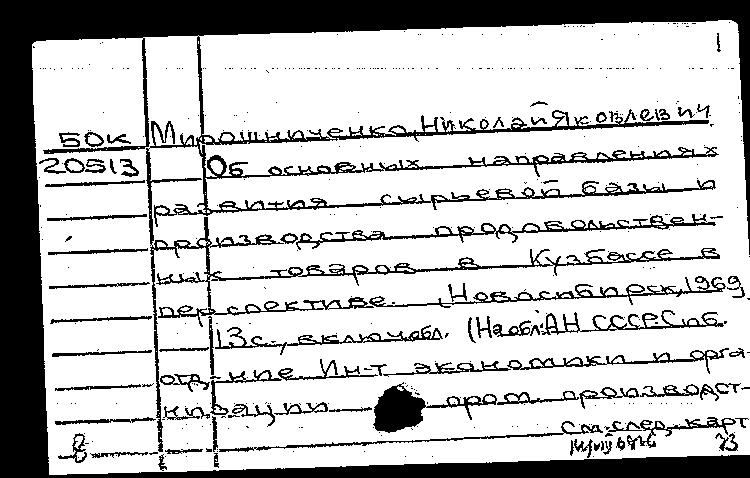 1
БОК Мирошниченко, Николай Яковлевич
20513 Об основных направлениях
развития сырьевой базы и
производства продовольствен-
ных товаров в Кузбассе в
перспективе. Новосибирск, 1969
13с., включ.обл. (На обл: АН СССР. Сиб.
отд-ние Ин-т экономики и орга-
низации пром. производст-
См. след. карт
8 73